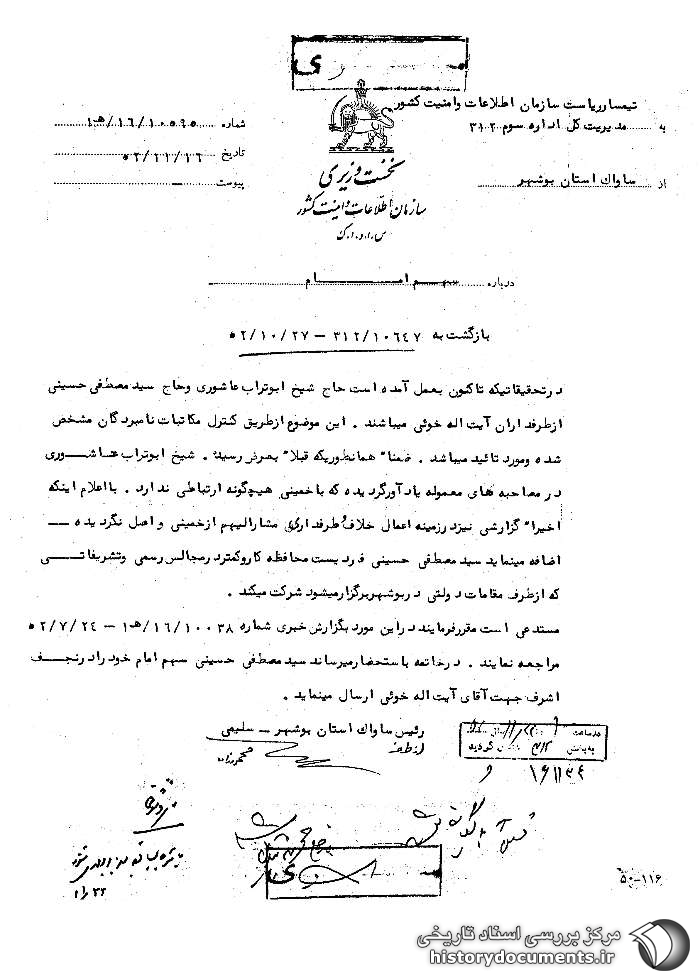 سری
تیمسار ریاست سازمان اطلاعات و امنیت کشور
به مدیریت کل اداره سوم ۳۱۲
از ساواک استان بوشهر
نخست وزیری
سازمان اطلاعات و امنیت کشور
س.ا.و.ا.ک
شماره ۱۰۵۹۵/۱۶/هـ۱
تاریخ ۵۲/۱۱/۱۶
پیوست
درباره سهم امام
بازگشت به ۳۱۲/۱۰۶۴۷ – ۵۲/۱۰/۲۷
در تحقیقاتیکه تاکنون بعمل آمده است حاج شیخ ابوتراب عاشوری و حاج سید مصطفی حسینی
از طرفداران آیت اله خوئی میباشند . این موضوع از طریق کنترل مکاتبات نامبردگان مشخص
شده و مورد تائید میباشد . ضمنا" همانطوریکه قبلا" بعرض رسیده شیخ ابوتراب عاشوری
در مصاحبه های معموله یادآور گردیده که با خمینی هیچگونه ارتباطی ندارد . با اعلام اینکه
اخیرا" گزارشی نیز در زمینه اعمال خلاف و طرفداری مشارالیهم از خمینی واصل نگردیده
اضافه مینماید سید مصطفی حسینی فردیست محافظه کار و کمتر در مجالس رسمی و تشریفاتی
که از طرف مقامات دولتی در بوشهر برگزار میشود شرکت میکند .
مستدعی است مقرر فرمایند در این مورد بگزارش خبری شماره ۱۰۰۳۸/۱۶/هـ۱ – ۵۲/۷/۲۴
مراجعه نمایند . در خاتمه باستحضار میرساند سید مصطفی حسینی سهم امام خود را در نجف
اشرف جهت آقای آیت اله خوئی ارسال مینماید .
رئیس ساواک استان بوشهر – سلیمی
از طرف
سری
۵۰-۱۱۶
مرکز بررسی اسناد تاریخی
historydocuments.ir